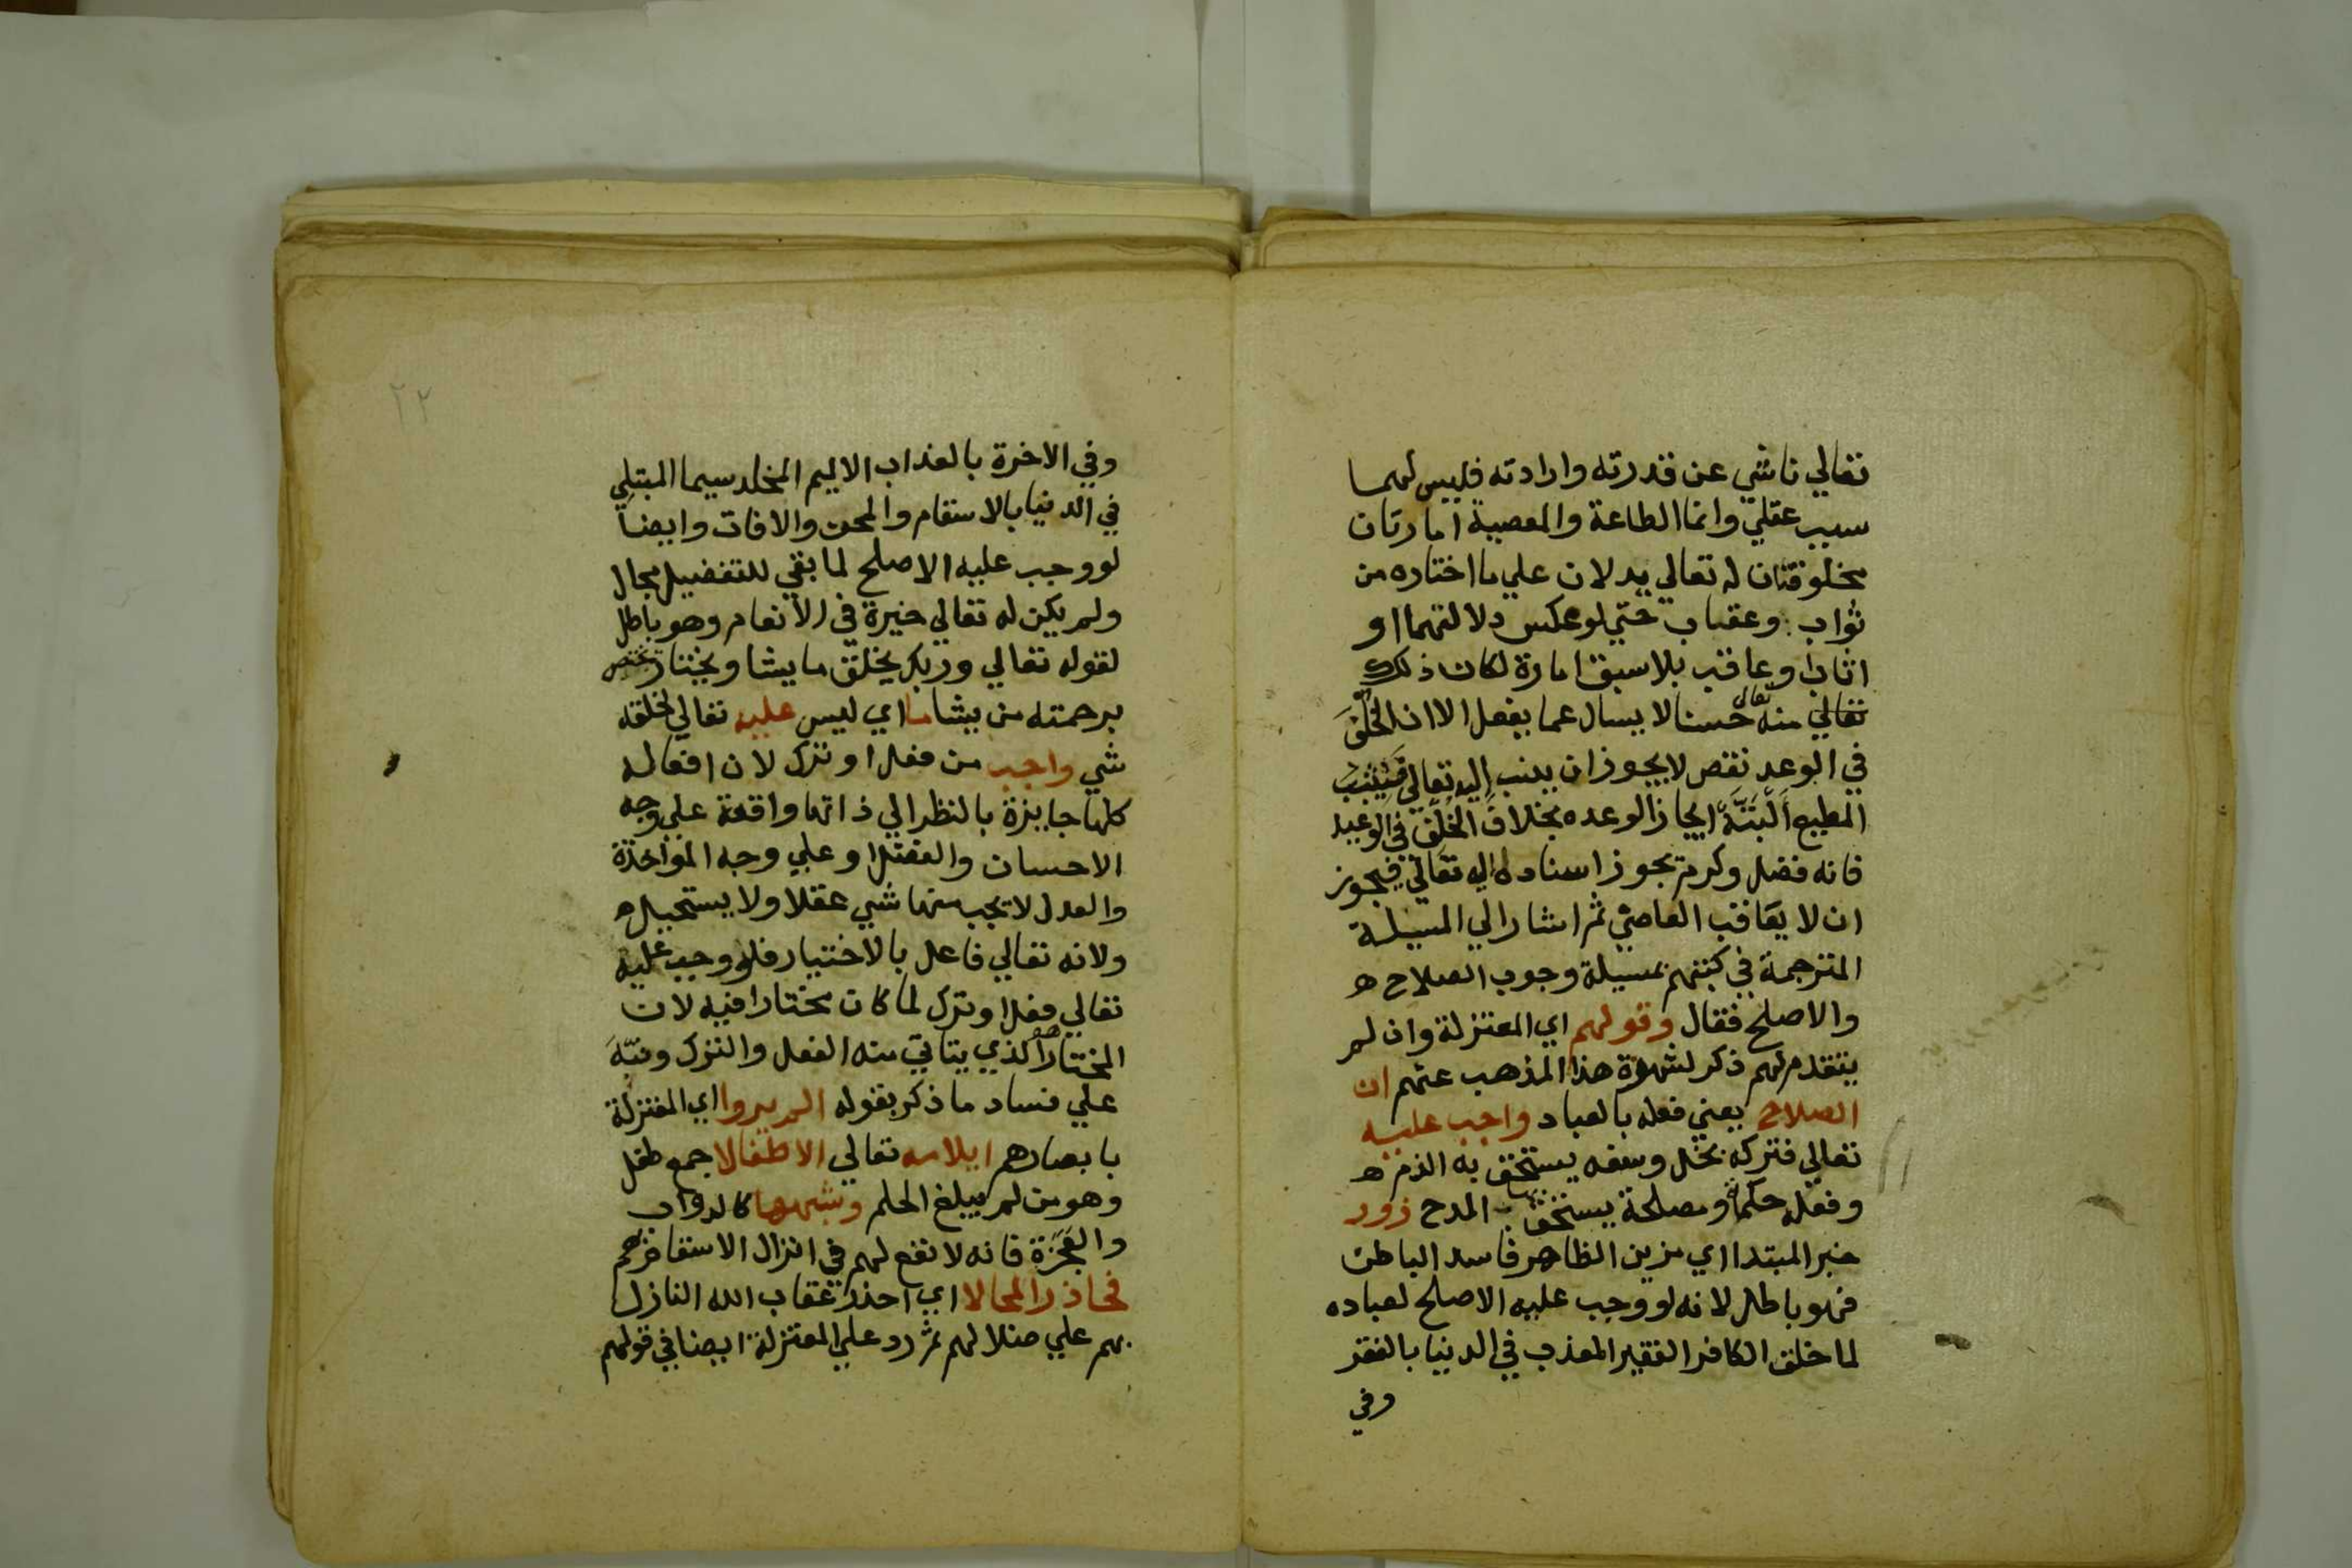 تعالي ناشي عن قدرته وارادته فليس لهما
سبب عقلي وانما الطاعة والمعصية امارتان
مخلوقتان له تعالي يدلان علي ما اختاره من
ثواب وعقاب حتي لو عكس دلالتهما او
اثاب او عاقب بلا سبق امارة لكان ذلك
تعالي منه تعالي حسنا لا يسال عما يفعل الا ان الخلف
في الوعد نقص لا يجوز ان ينسب اليه تعالي فيثيب
المطيع البتة ايجاز الوعده بخلاف الخلف في الوعيد
فانه فضل وكرم يجوز اسناده اليه تعالي فيجوز
ان لا يعاقب العاصي ثم اشار الي المسيلة
المترجمة في كتبهم بمسيلة وجوب الصلاح ه
والاصلح فقال وقولهم اي المعتزلة وان لم
يتقدم لهم ذكر لشهرة هذا المذهب عنهم ان
الصلاح يعني فعله بالعباد واجب عليه
تعالي فتركه بخل وسفه يستحق به الذم ه
وفعله حكمة ومصلحة يستحق بها المدح زور
خبر المبتدا اي مزين الظاهر فاسد الباطن
فهو باطل لانه لو وجب عليه الاصلح لعباده
لما خلق الكافر الفقير المعذب في الدنيا بالفقر
وفي
٢٢
وفي الاخرة بالعذاب الاليم المخلد سيما المبتلي
في الدنيا بالاسقام والمحن والافات وايضا
لو وجب عليه الاصلح لما بقي للتفضيل مجال
ولم يكن له تعالي خيرة في الانعام وهو باطل
لقوله تعالي وربك يخلق ما يشا ويختار يختص
برحمته من يشا ما اي ليس عليه تعالي لخلقه
شي واجب من فعل او ترك لان افعاله
كلها جايزة بالنظر الي ذاتها واقعة علي وجه
الاحسان والفضل او علي وجه المواخذة
والعدل لا يجب منها شي عقلا ولا يستحيل ه
ولانه تعالي فاعل بالاختيار فلو وجب عليه
تعالي فعل او ترك لما كان مختارا فيه لان
المختار هو الذي يتاتي منه الفعل والترك ونبه
علي فساد ما ذكر بقوله الم يروا اي المعتزلة
بابصارهم ايلامه تعالي الاطفالا جمع طفل
وهو من لم يبلغ الحلم وشبهها كالدواب
والعجزة فانه لا نفع لهم في انزال الاسقام بهم
فحاذر المحالا اي احذر عقاب الله النازل
بهم علي ضلالهم ثم رد علي المعتزلة ايضا في قولهم